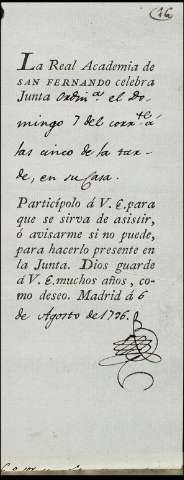 (46
La Real Academia de
SAN FERNANDO celebra
Junta Ordin.ª el do-
mingo 7 del corr.te á
las cinco de la tar-
de, en su Casa.
Participolo á V. E. para
que se sirva de asistir,
ó avisarme si no puede,
para hacerlo presente en
la Junta. Dios guarde
á V. E. muchos años, co-
mo deseo. Madrid á 6
de Agosto de 1796.